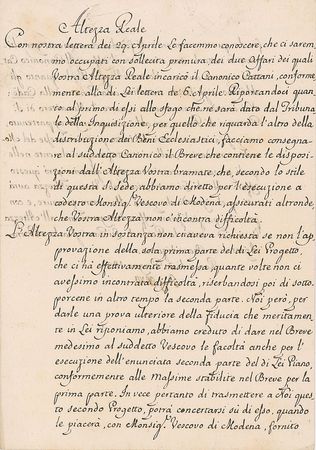 Altezza Reale
Con nostra lettera dei 29. Aprile Le facemmo conoscere, che ci sarem,
mo occupati con sollecita premura, dei due Affari dei quali
Vostra Altezza Reale incaricò il Canonico Cattani, conforme,
mente alla di Lei lettera de 6. Aprile. Riportandoci quan,
to al primo, di essi allo sfogo che ne sarà dato dal Tribuna,
le della Inquisizione, per quello che riguarda l'altro della
distribuzione dei Beni Ecclesiastici, facciamo consegna,
re al suddetto Canonico il Breve che contiene le disposi,
zioni dall'Altezza Vostra bramate, che, secondo lo stile
di questa S. Sede, abbiamo diretto per l'esecuzione a
codesto Monsig.r Vescovo di Modena, assicurati altronde
che Vostra Altezza non c'incontra difficoltà.
L'Altezza Vostra in sostanza non chiaveva richiesta se non l'ap,
provazione della sola prima parte del di Lei Progetto,
che ci ha effettivamente trasmessa, quante volte non ci
avessimo incontrato difficoltà, riserbandosi poi di sotto,
porcene in altro tempo la seconda parte. Noi però, per
darle una prova ulteriore della Fiducia che meritamen,
te in Lei riponiamo, abbiamo creduto di dare nel Breve
medesimo al suddetto Vescovo le facoltà anche per l'
esecuzione dell'enunciata seconda parte del di Lei Piano,
conformemente alle Massime stabilite nel Breve per la
prima parte. In vece pertanto di trasmettere a Noi que,
sto secondo Progetto, potrà concertarsi su di esso, quando
le piacerà, con Monsig.r Vescovo di Modena, fornito